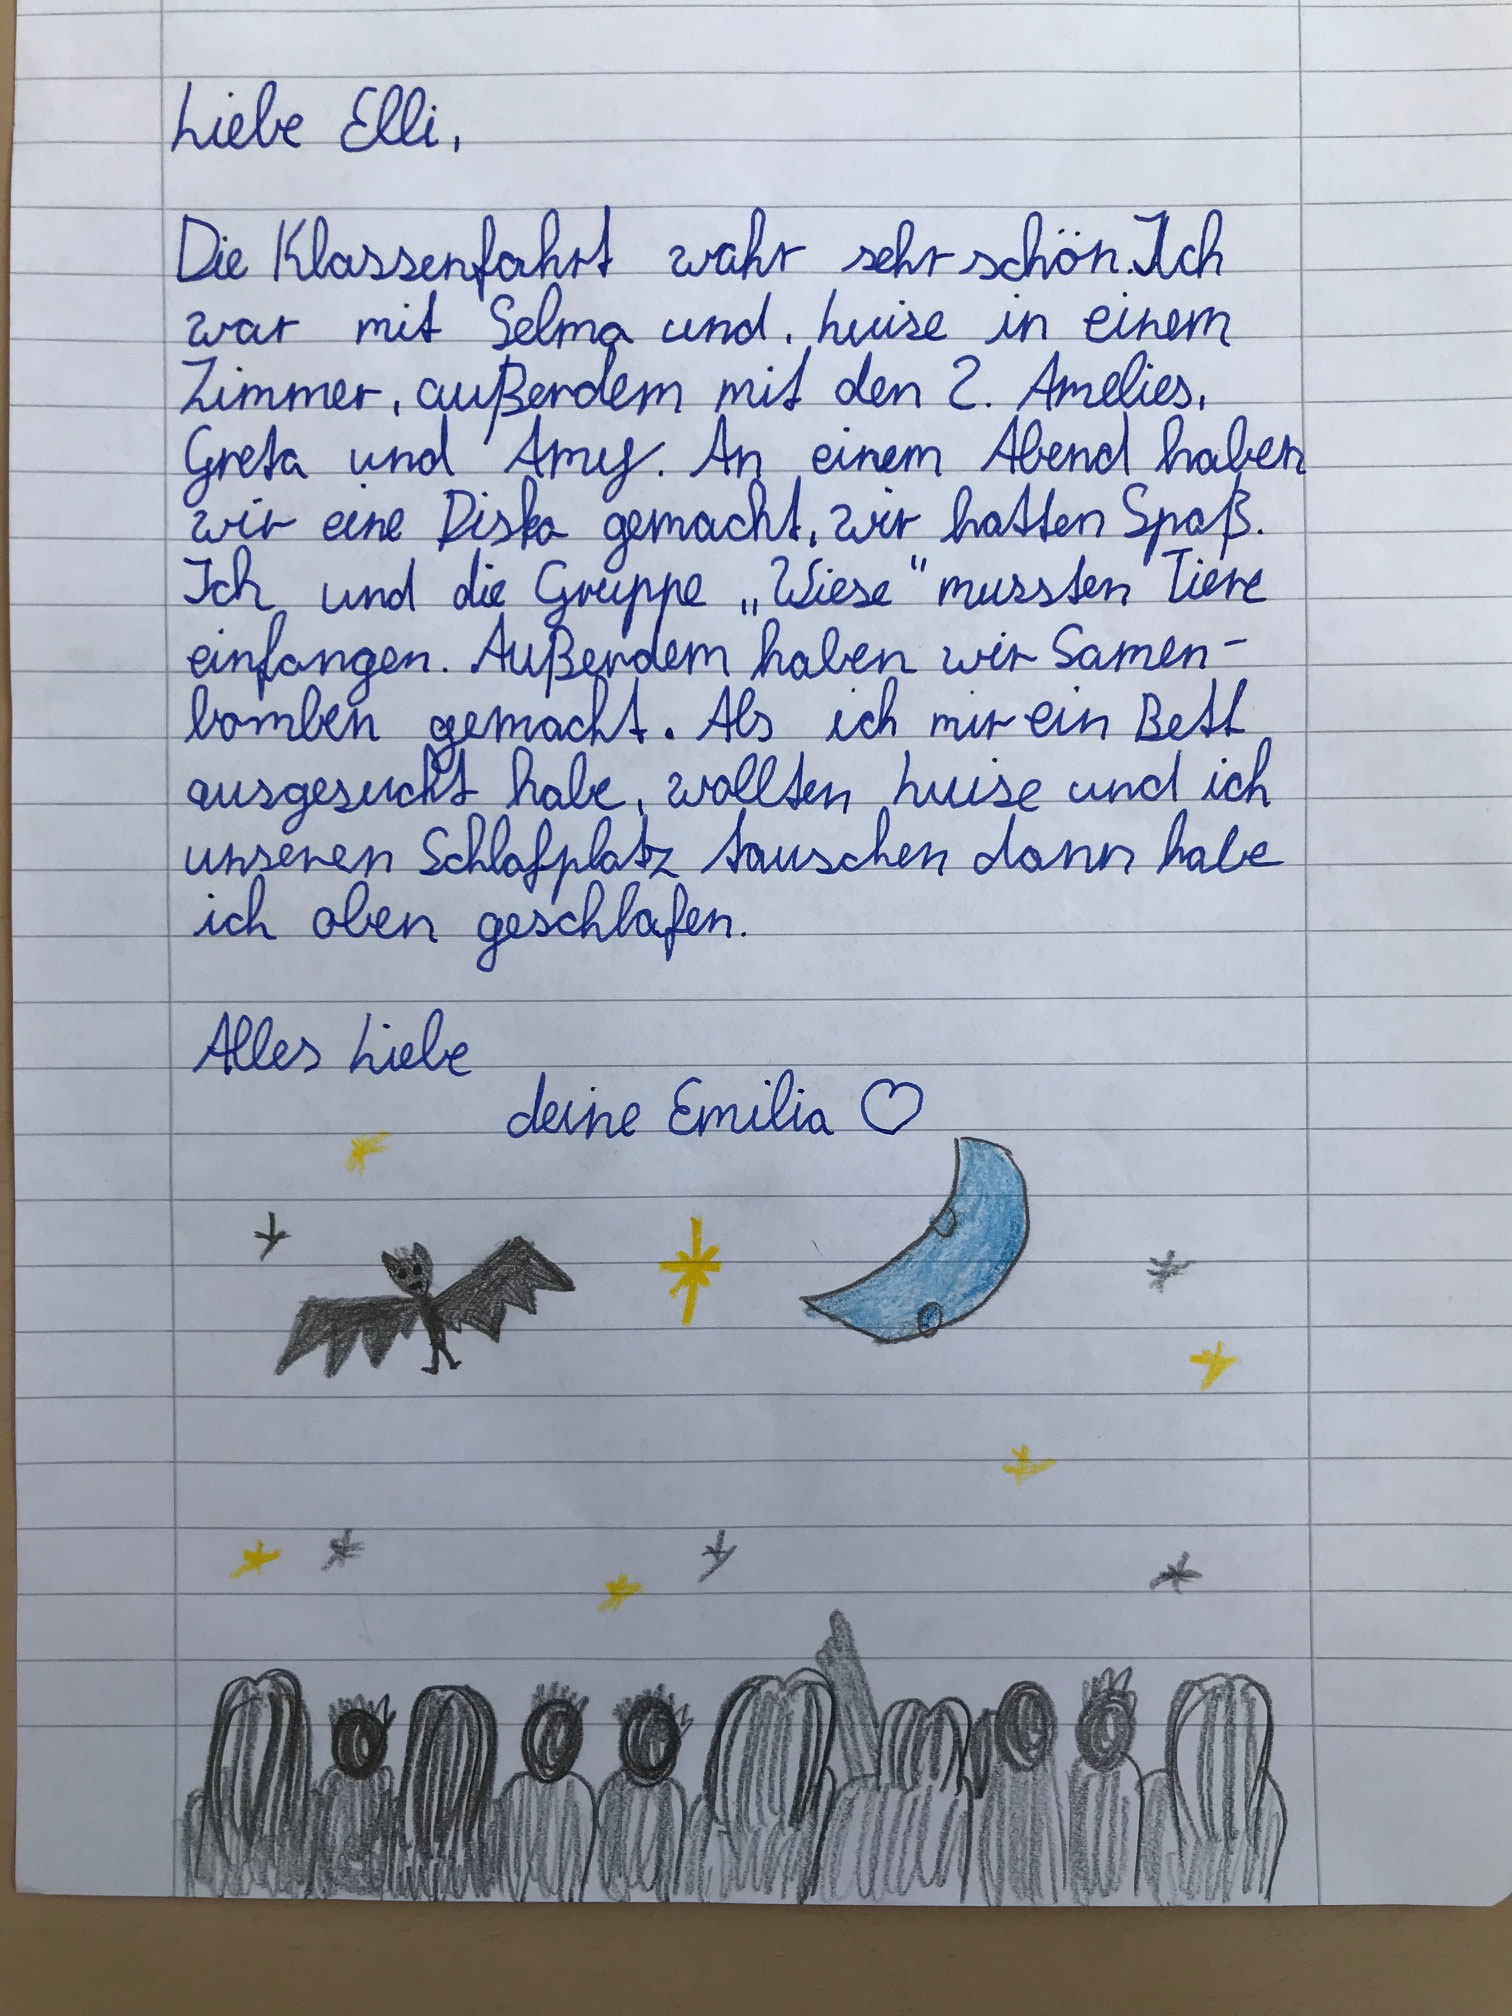 Liebe Elli,
Die Klassenfahrt wahr sehr schön. Ich
war mit Selma und. Luise in einem
Zimmer, außerdem mit den 2. Amelies,
Greta und Amy. An einem Abend haben
wir eine Disko gemacht, wir hatten Spaß.
Ich und die Gruppe „Wiese“ mussten Tiere
einfangen. Außerdem haben wir Samen-
bomben gemacht. Als ich mir ein Bett
ausgesucht habe, wollten Luise und ich
unseren Schlafplatz tauschen dann habe
ich oben geschlafen.
Alles Liebe
deine Emilia ♡